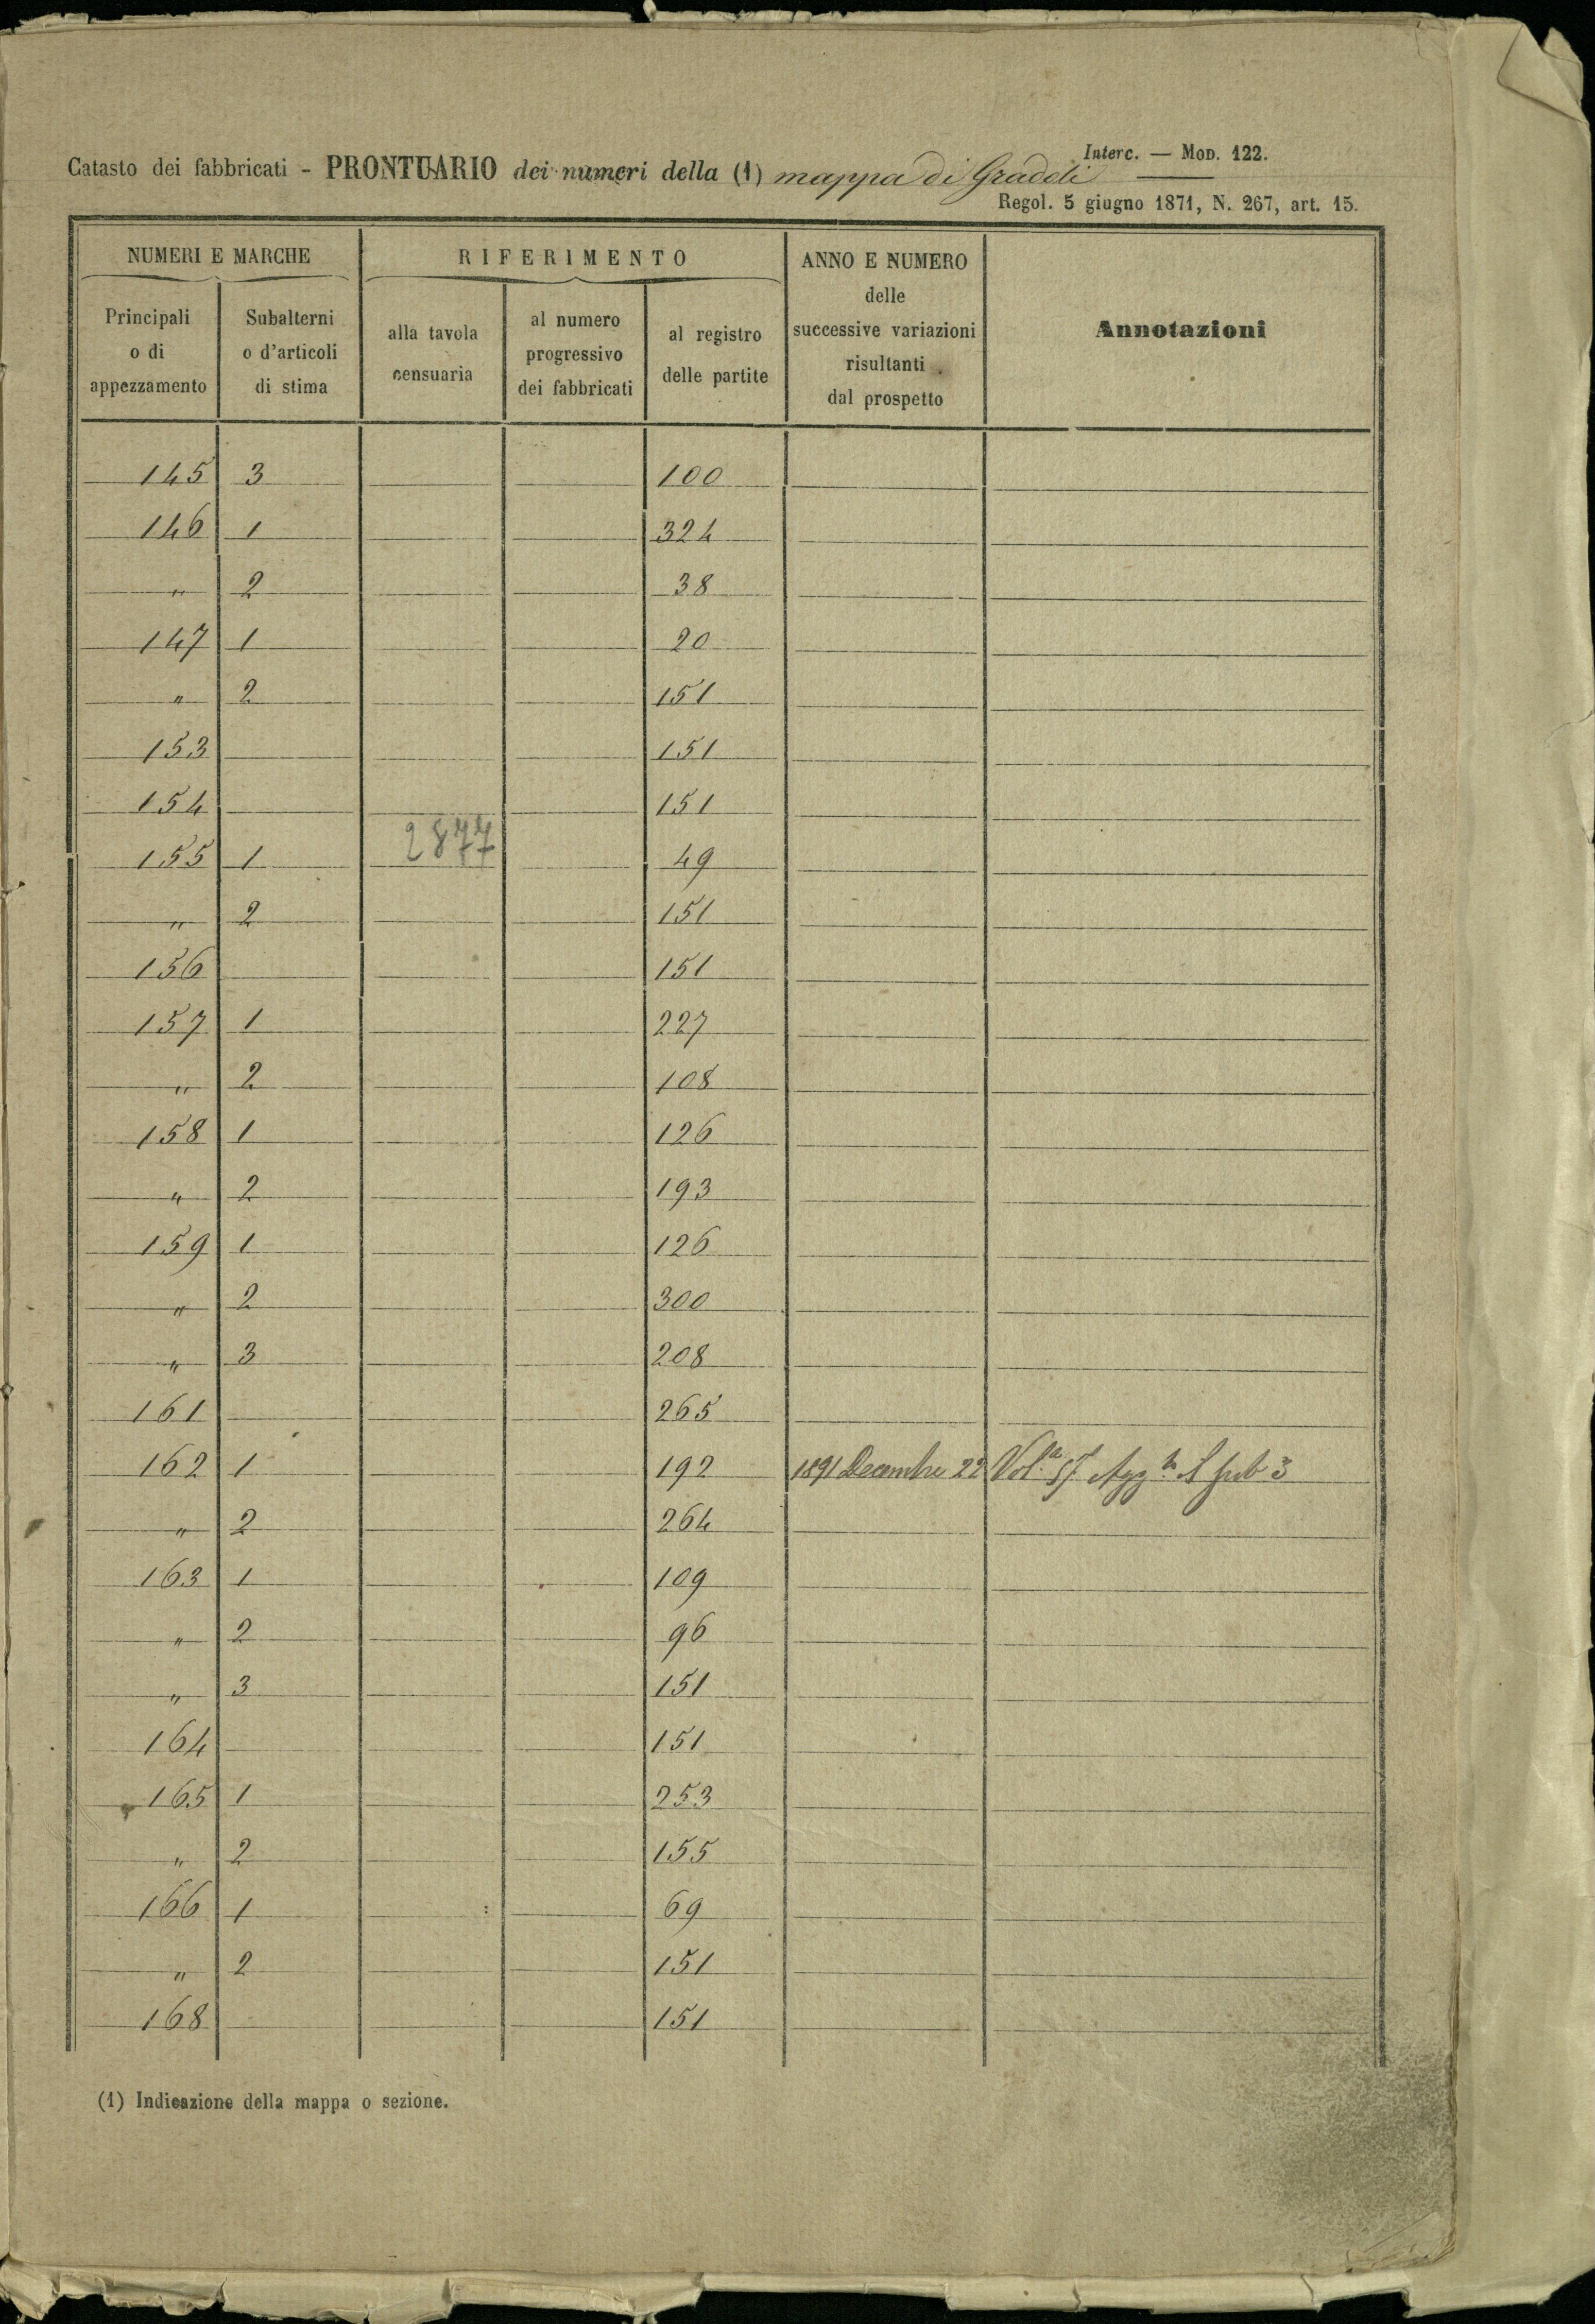 Interc. — Mod. 122.
Catasto dei fabbricati - PRONTUARIO dei numeri della (1) mappa di Gradoli
Regol. 5 giugno 1871, N. 267, art. 15.
NUMERI E MARCHE RIFERIMENTO ANNO E NUMERO delle successive variazioni risultanti dal prospetto Annotazioni
Principali o di appezzamento Subalterni o d'articoli di stima alla tavola censuaria al numero progressivo dei fabbricati al registro delle partite
145 3 100
146 1 324
" 2 38
147 1 20
" 2 151
153 151
154 151
155 1 2877 49
" 2 151
156 151
157 1 227
" 2 108
158 1 126
" 2 193
159 1 126
" 2 300
" 3 208
161 265
162 1 192 1891 Decembre 22 Vol.a sub 3
" 2 264
163 1 109
" 2 96
" 3 151
164 151
165 1 253
" 2 155
166 1 69
" 2 151
168 151
(1) Indicazione della mappa o sezione.